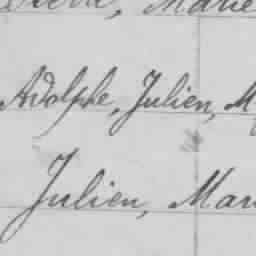 Marie
Adolphe, Julien, M
Julien, Mari